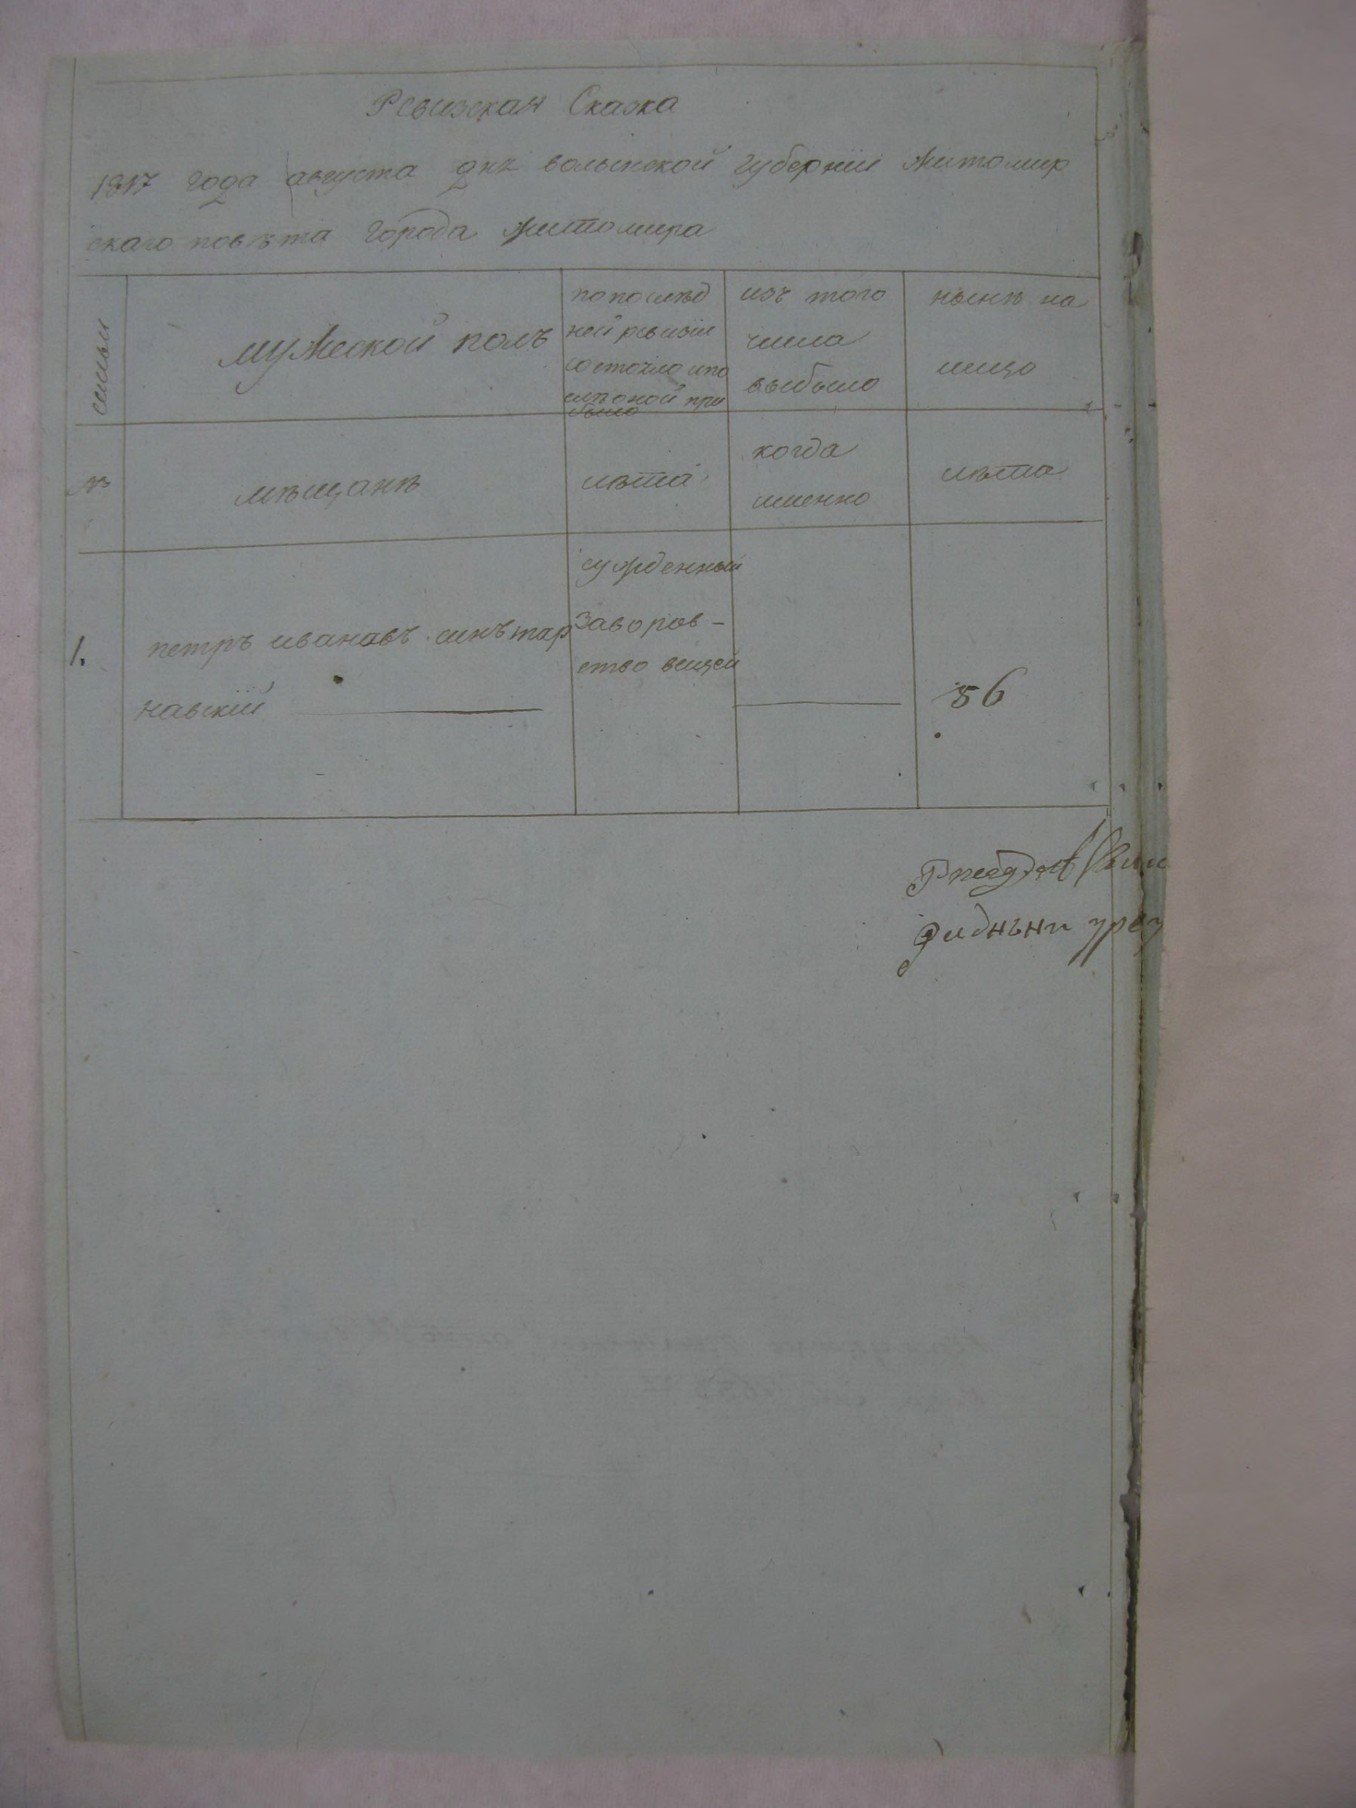 Ревизская Сказка
1817 года августа дня волынской губернїи житомир
скаго повѣта города житомира
семьи
мужеской полъ
попослѣд
ней ревизїи
состояло ипо
слѣ оной при
было
изъ того
числа
выбыло
нынѣ на
лицо
№
мѣщанѣ
лѣта
когда
имянно
лѣта
1.
петръ иванавъ синъ тар
навскїй
сужденный
заворов-
ство вещей
56